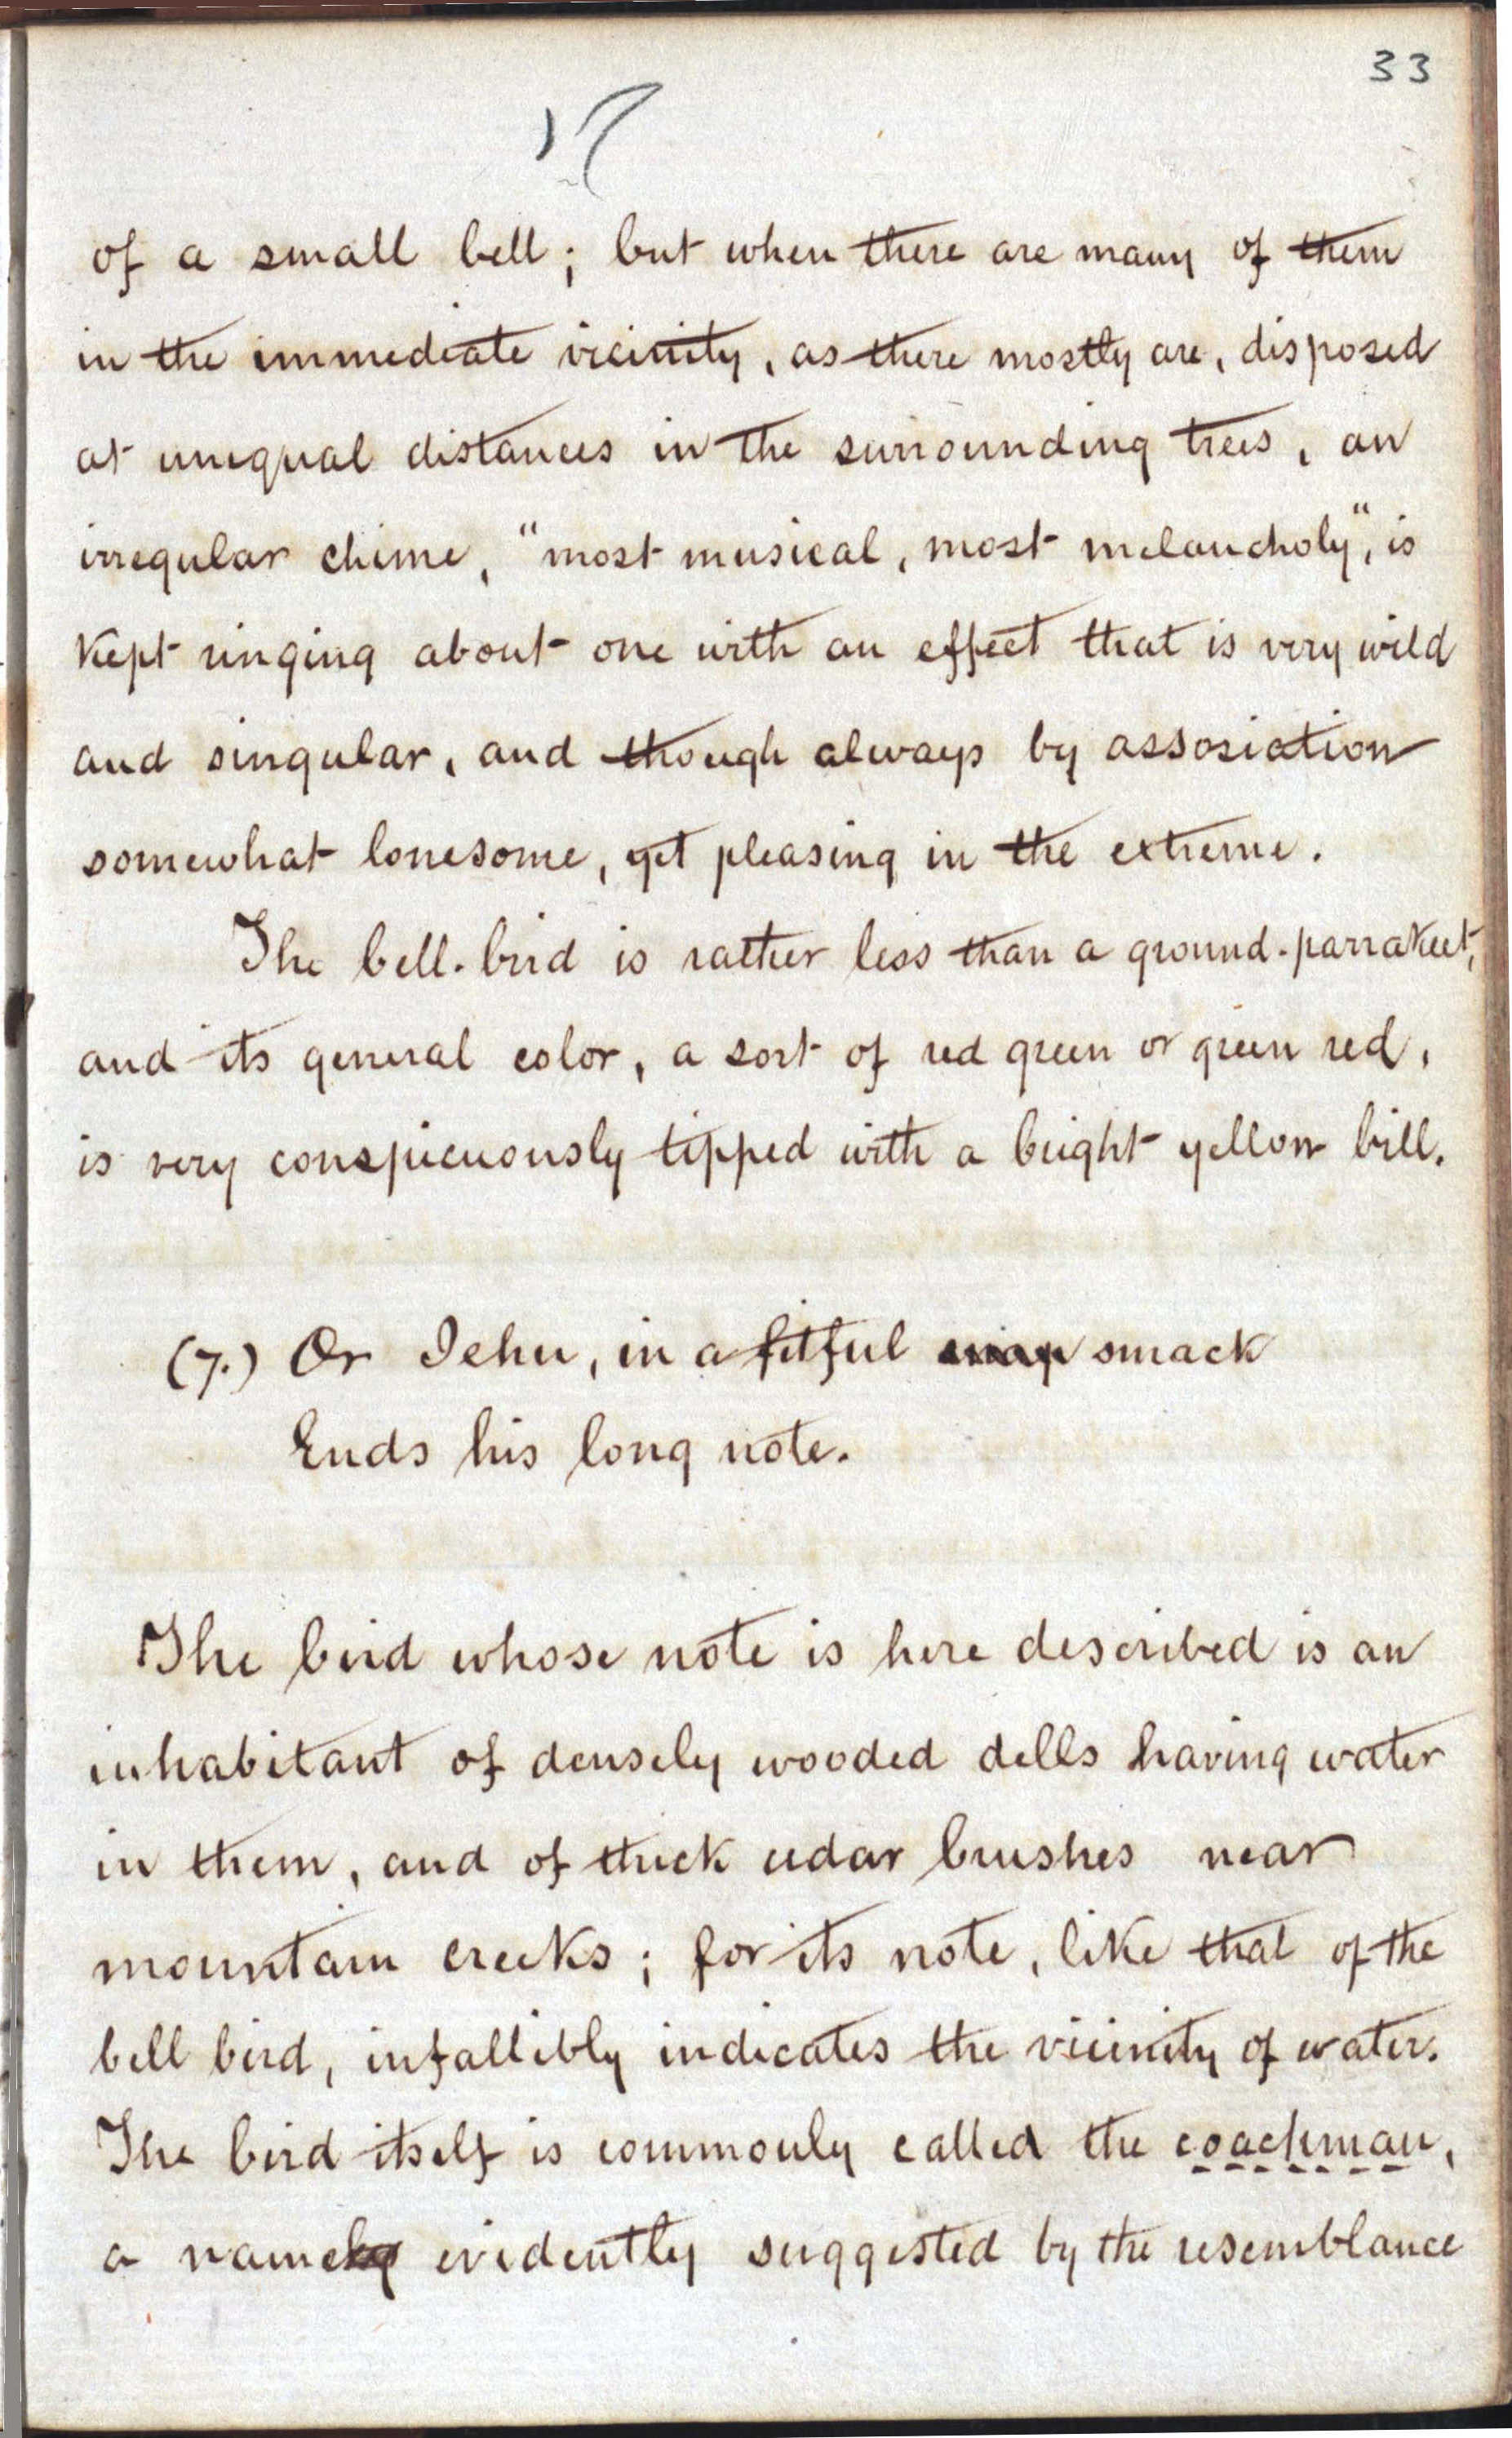 33
of a small bell; but when there are many of them
in the immediate vicinity, as there mostly are, disposed
at unequal distances in the surrounding trees, an
irregular chime, "most musical, most melancholy", is
kept ringing about one with an effect that is very wild
and singular, and though always by assosiation
somewhat lonesome, yet pleasing in the extreme.
The bell-bird is rather less than a ground-parrakeet,
and its general color, a sort of red green or green red,
is very conspicuously tipped with a bright yellow bill.
(7.) Or Jehu, in a fitful smack
Ends his long note.
The bird whose note is here described is an
inhabitant of densely wooded dells having water
in them, and of thick cedar brushes near
mountain creeks; for its note, like that of the
bell bird, infallibly indicates the vicinity of water.
The bird itself is commonly called the coachman,
a name evidently suggested by the resemblance